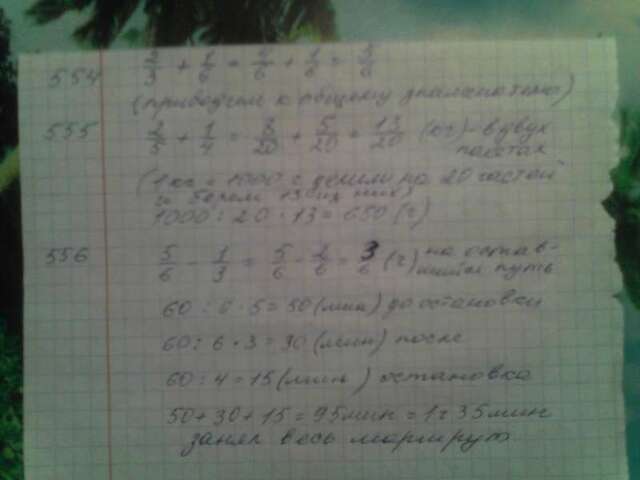 554 2/3 + 1/6 = 4/6 + 1/6 = 5/6
(приводим к общему знаменателю)
555 2/5 + 1/4 = 8/20 + 5/20 = 13/20 (кг) - в двух
пакетах
(1 кг = 1000 г делим на 20 частей
и берем 13 из них)
1000 : 20 · 13 = 650 (г)
556 5/6 - 1/3 = 5/6 - 2/6 = 3/6 (ч) на остав-
шийся путь
60 : 6 · 5 = 50 (мин) до остановки
60 : 6 · 3 = 30 (мин) после
60 : 4 = 15 (мин) остановка
50 + 30 + 15 = 95 мин = 1ч 35 мин
занял весь маршрут